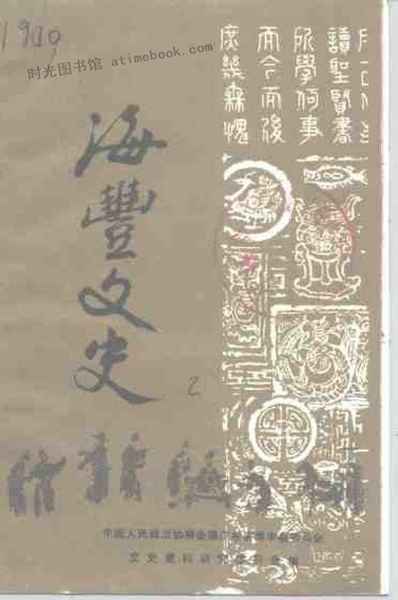 时光图书馆 atimebook.com
讀聖賢書
所學何事
而今而後
庶幾無愧
海豐文史
2
中国人民政治协商会议广东省海丰县委员会
文史资料研究委员会编